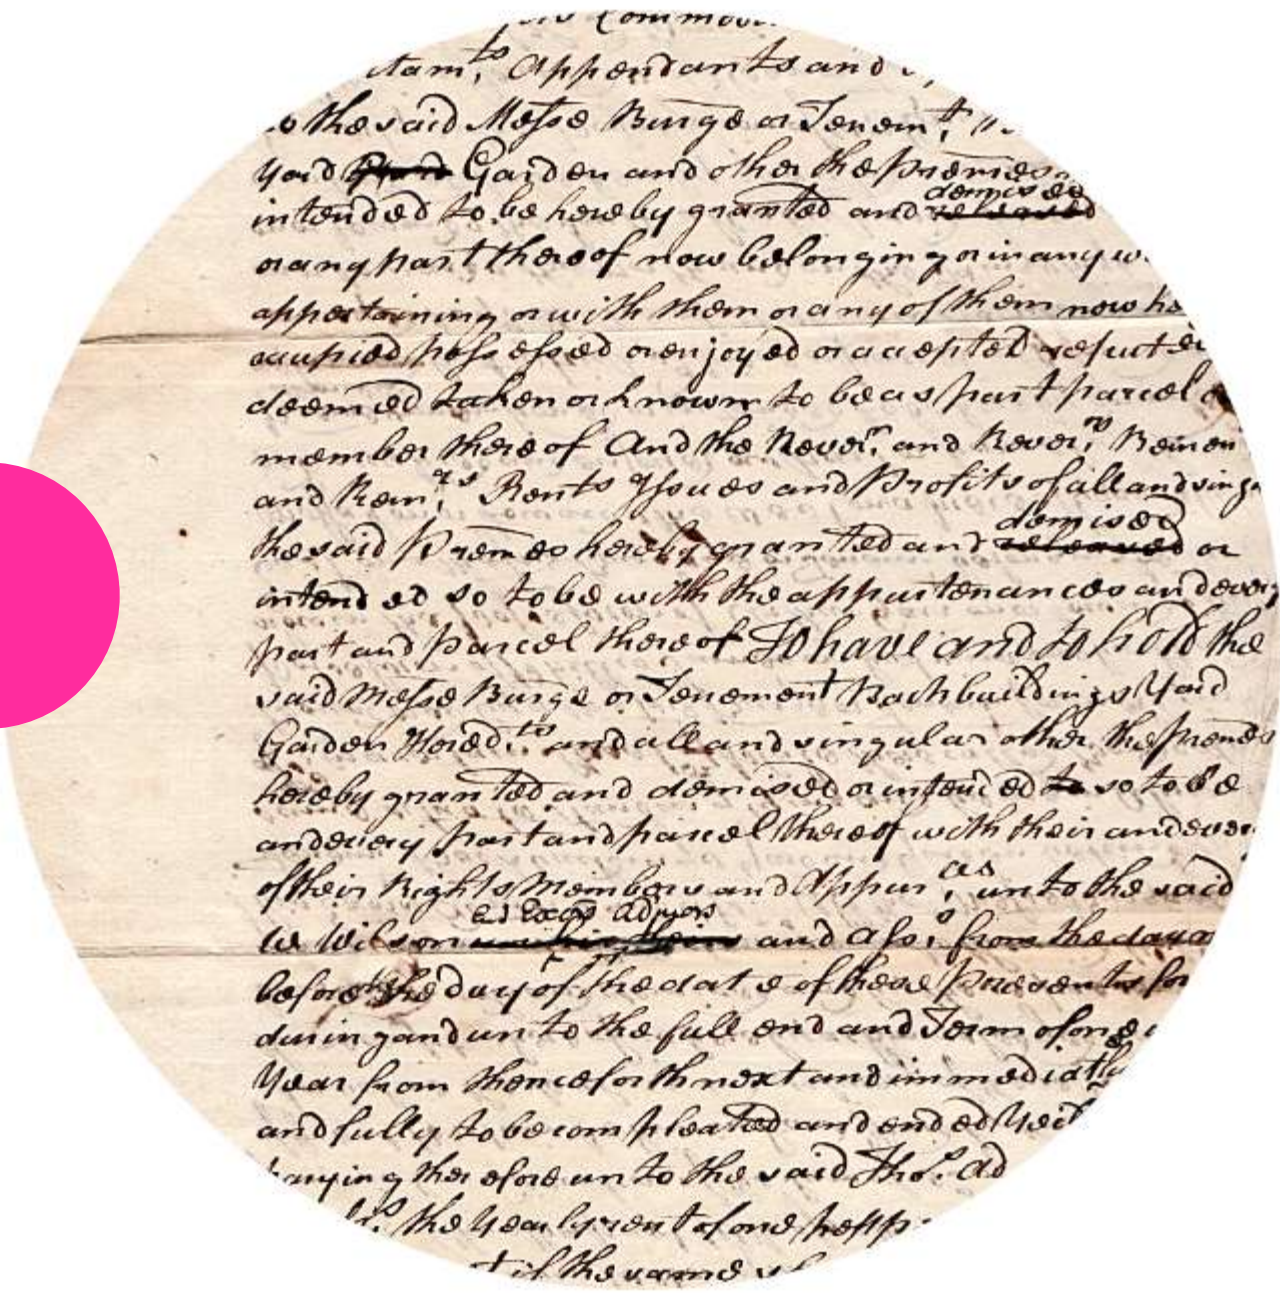 Commod
Appendants and
to the said Messe Burge or Tenemt.
Yard Garden and other the Premes
intended to be hereby granted and demised released
or any part thereof now belonging or in any w
appertaining or with them or any of them now he
occupied possessed or enjoyed or accepted reputed
deemed taken or known to be as part parcel or
member thereof And the Rever. and Rever. Remain
and Remrs Rents Issues and Profits of all and singu
the said Premes hereby granted and demised released or
intended so to be with the appurtenances and every
part and parcel thereof To have and to hold the
said Messe Burge or Tenement Backbuildings Yard
Garden Heredts. and all and singular other the premes
hereby granted and demised or intended to so to be
and every part and parcel thereof with their and every
of their Rights Members and Appurces unto the said
W Wilson Exors Admors and Asss. from the day
before the day of the date of these Presents for
during and unto the full end and Term of one
Year from thenceforth next and immediatly
and fully to be compleated and ended Yeild
paying therefore unto the said Thos. Ad
the Yearly rent of one pepp
the same